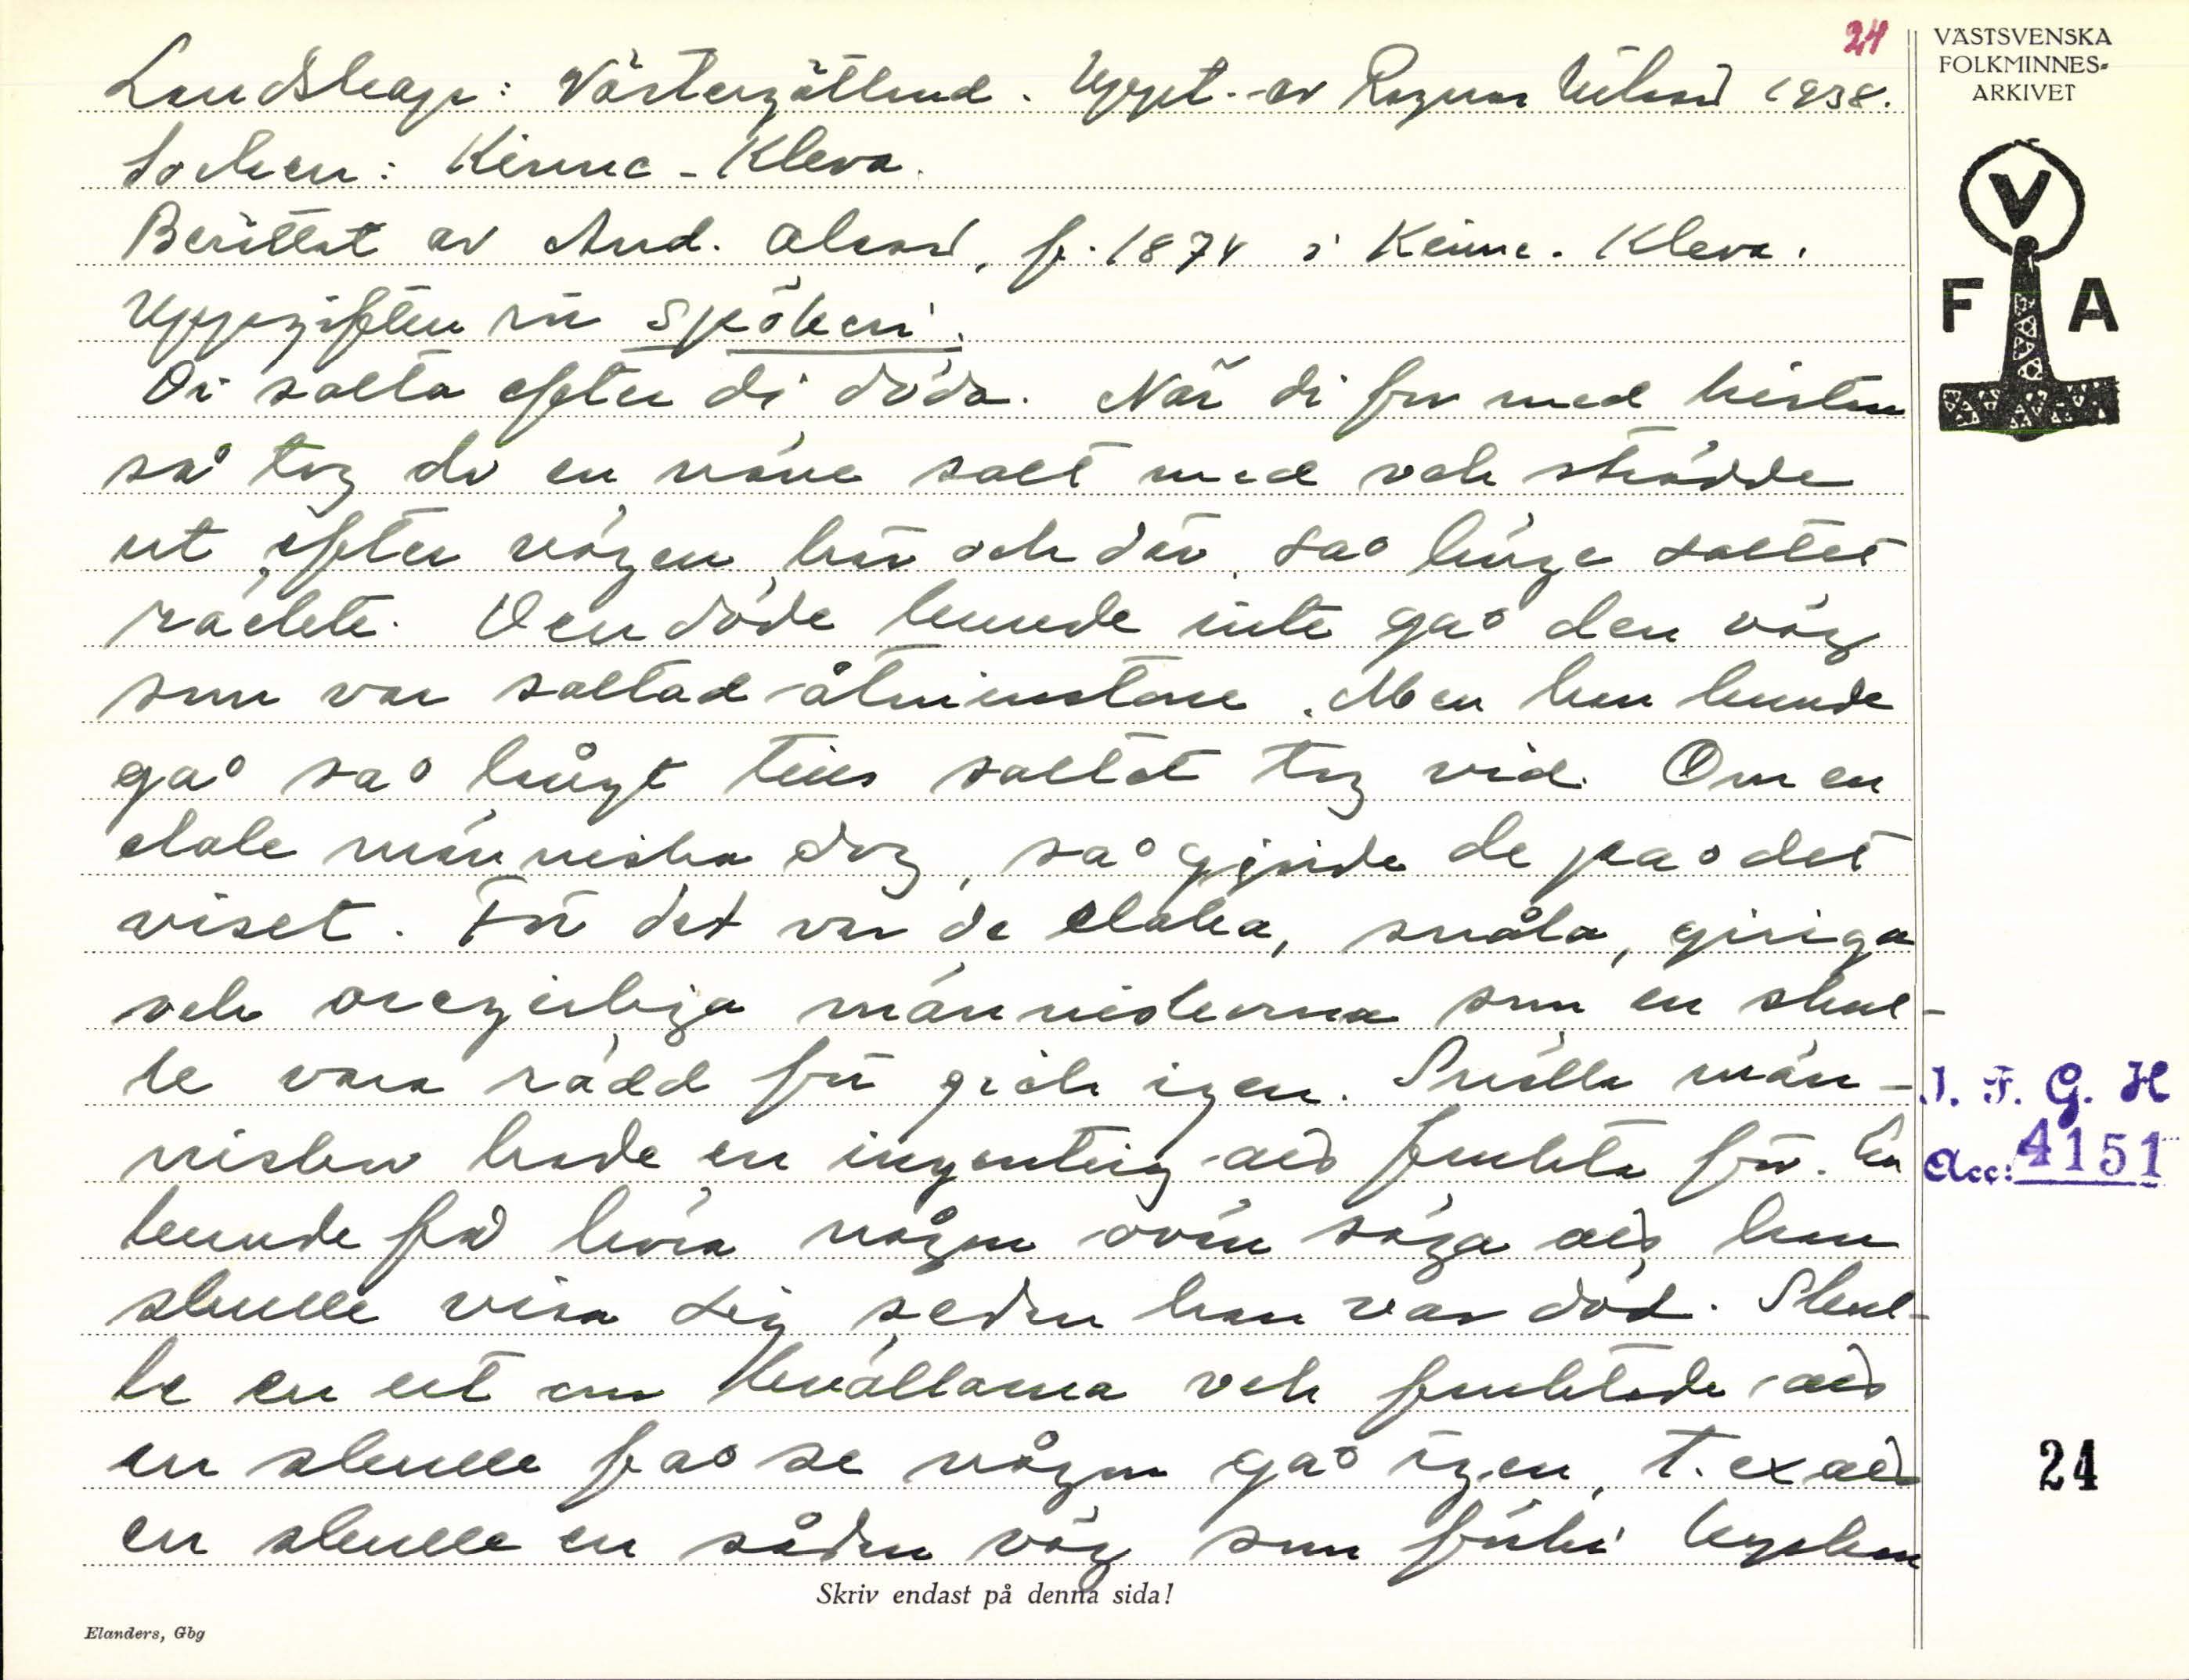 24
Landskap: Västergötland. Uppt. av Ragnar Nilsson 1938.
Socken: Kinne-Kleva.
Berättat av And. Olsson, f. 1874 i Kinne-Kleva.
Uppgifter om spökeri.
Di salta efter di döda. När di for med kistan
så tog de en näve salt med och strödde
ut efter vägen här och där så länge saltet
räckte. Den döde kunde inte gå den väg
som var saltad åtminstone. Men han kunde
gå så långt tills saltet tog vid. Om en
elak människa dog, så gjorde de på det
viset. För det var de elaka, snåla, giriga
och oregerliga människorna som en skul-
le vara rädd för gick igen. Snälla män-
niskor hade en ingenting att frukta för. En
kunde få höra någon ovän säga att han
skulle visa sig sedan han var död. Skul-
le en ut om kvällarna och fruktade att
en skulle få se någon gå igen, t. ex att
en skulle en sådan väg som förbi kyrkan
Skriv endast på denna sida!
Elanders, Gbg
VÄSTSVENSKA
FOLKMINNES-
ARKIVET
V
F A
I. F. G. H
Acc: 4151
24